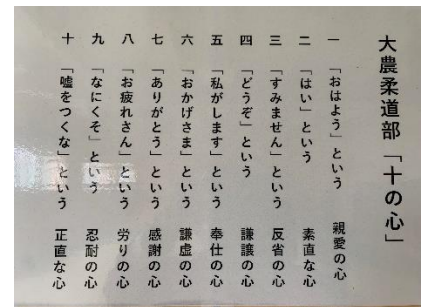 大農柔道部「十の心」
一 「おはよう」という 親愛の心
二 「はい」という 素直な心
三 「すみません」という 反省の心
四 「どうぞ」という 謙譲の心
五 「私がします」という 奉仕の心
六 「おかげさま」という 謙虚の心
七 「ありがとう」という 感謝の心
八 「お疲れさん」という 労りの心
九 「なにくそ」という 忍耐の心
十 「嘘をつくな」という 正直な心